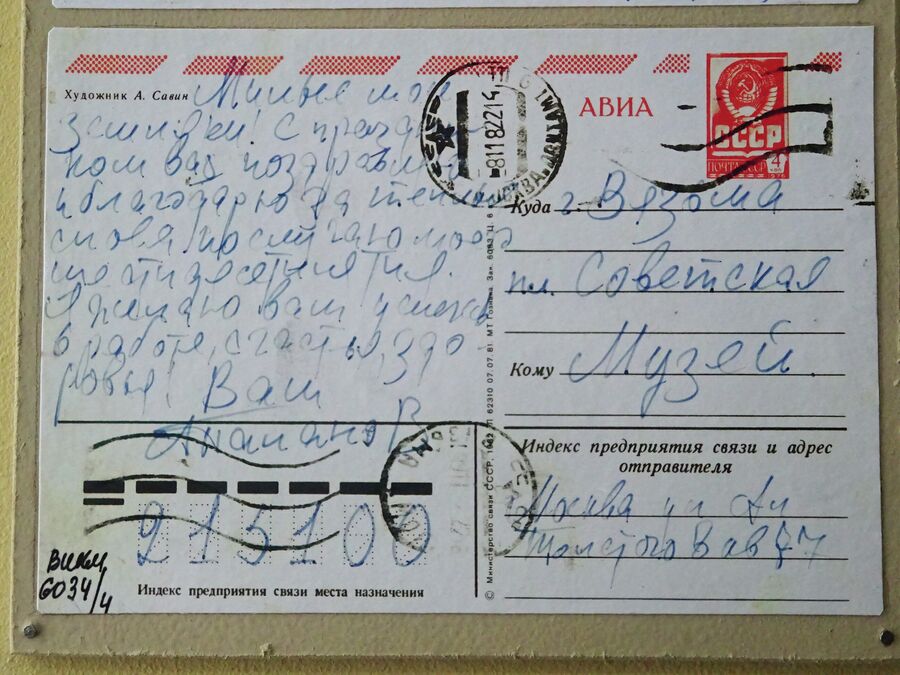 Художник А. Савин
Милые мои
земляки! С праздни
ком вас поздравляю
и благодарю за теплые
слова по случаю моего
шестидесятилетия.
Я желаю вам успехов
в работе, счастья, здо-
ровья! Ваш
АВИА
СССР
ПОЧТА СССР
4
коп
1978
МОСКВА
8118221
Куда г. Вязьма
пл. Советская
Кому Музей.
Индекс предприятия связи и адрес
отправителя
Москва ул Ал
Толстого
215100
Индекс предприятия связи места назначения
© Министерство связи СССР. 1982
62310 07.07.81 МТ Гознака. Зак.
ВИКМ
6034/4